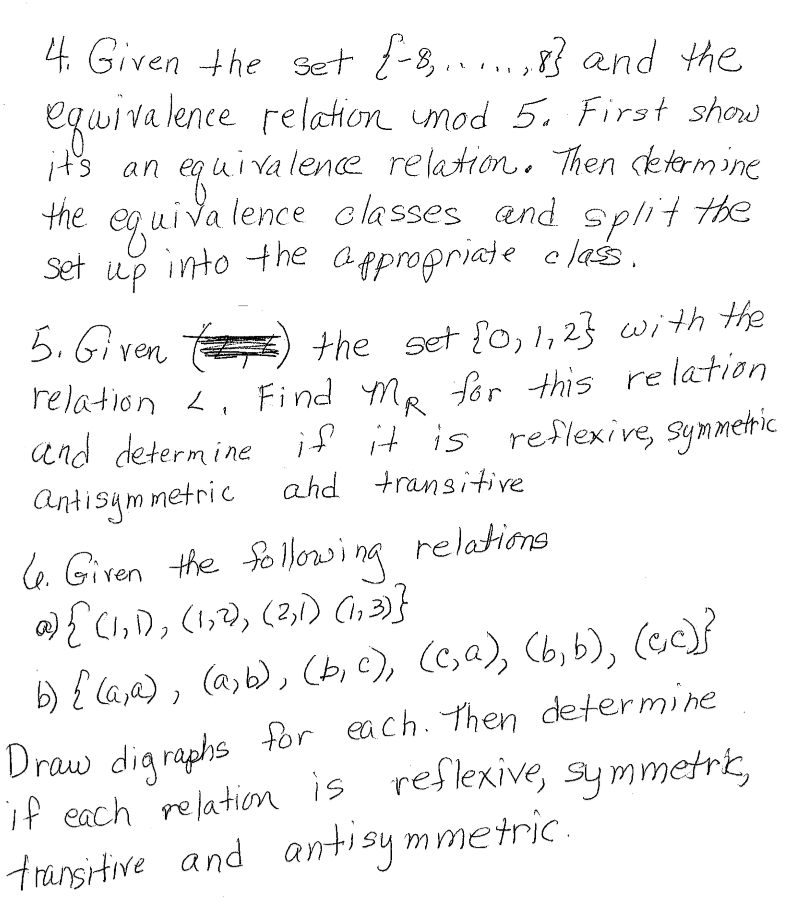 4. Given the set {-8,.....,8} and the
equivalence relation mod 5. First show
it's an equivalence relation. Then determine
the equivalence classes and split the
set up into the appropriate class.
5. Given the set {0,1,2} with the
relation <. Find MR for this relation
and determine if it is reflexive, symmetric
antisymmetric and transitive
6. Given the following relations
a) {(1,1), (1,2), (2,1) (1,3)}
b) {(a,a), (a,b), (b,c), (c,a), (b,b), (c,c)}
Draw digraphs for each. Then determine
if each relation is reflexive, symmetric,
transitive and antisymmetric.